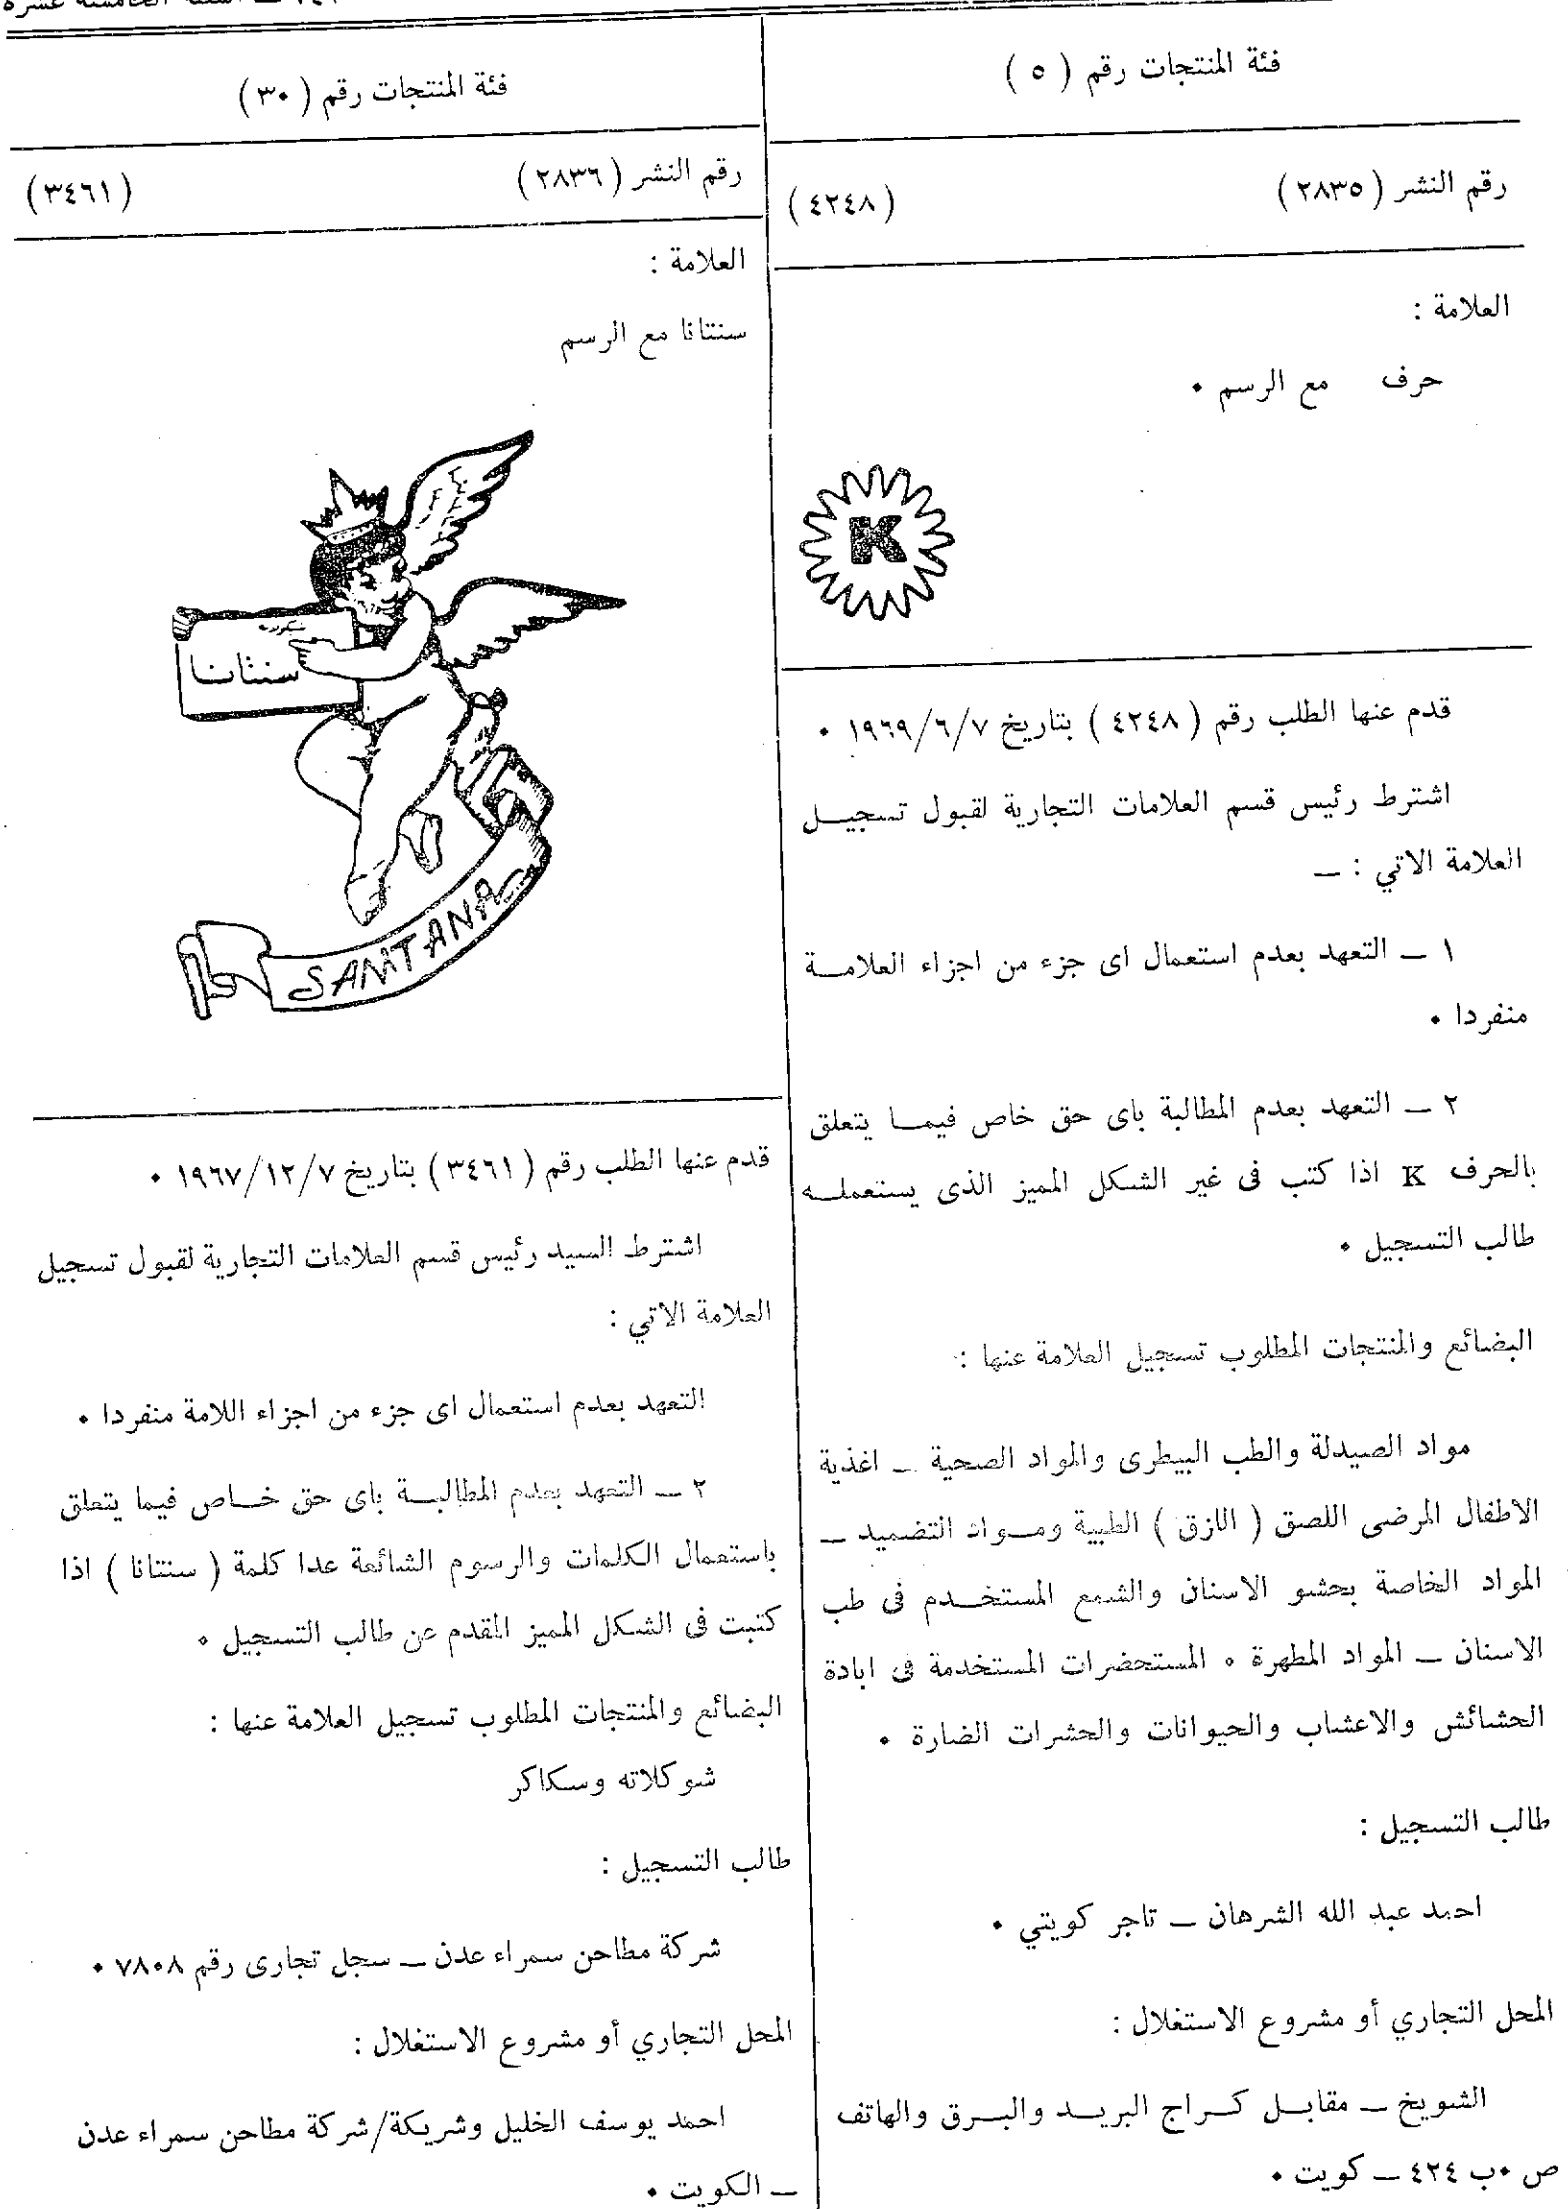 السنة الخامسة عشرة
فئة المنتجات رقم ( ٥ )
رقم النشر ( ٢٨٣٥ ) ( ٤٢٤٨ )
العلامة :
حرف مع الرسم .
K
قدم عنها الطلب رقم ( ٤٢٤٨ ) بتاريخ ١٩٦٩/٦/٧ .
اشترط رئيس قسم العلامات التجارية لقبول تسجيل
العلامة الاتي : —
١ — التعهد بعدم استعمال اى جزء من اجزاء العلامة
منفردا .
٢ — التعهد بعدم المطالبة باى حق خاص فيما يتعلق
بالحرف K اذا كتب فى غير الشكل المميز الذى يستعمله
طالب التسجيل .
البضائع والمنتجات المطلوب تسجيل العلامة عنها :
مواد الصيدلة والطب البيطرى والمواد الصحية — اغذية
الاطفال المرضى اللصق ( اللازق ) الطبية ومواد التضميد —
المواد الخاصة بحشو الاسنان والشمع المستخدم فى طب
الاسنان — المواد المطهرة . المستحضرات المستخدمة فى ابادة
الحشائش والاعشاب والحيوانات والحشرات الضارة .
طالب التسجيل :
احمد عبد الله الشرهان — تاجر كويتي .
المحل التجاري أو مشروع الاستغلال :
الشويخ — مقابل كراج البريد والبرق والهاتف
ص .ب ٤٢٤ — كويت .
فئة المنتجات رقم ( ٣٠ )
رقم النشر ( ٢٨٣٦ ) ( ٣٤٦١ )
العلامة :
سنتانا مع الرسم
سنتانا
SANTANA
قدم عنها الطلب رقم ( ٣٤٦١ ) بتاريخ ١٩٦٧/١٢/٧ .
اشترط السيد رئيس قسم العلامات التجارية لقبول تسجيل
العلامة الاتي :
التعهد بعدم استعمال اى جزء من اجزاء اللامة منفردا .
٢ — التعهد بعدم المطالبة باى حق خاص فيما يتعلق
باستعمال الكلمات والرسوم الشائعة عدا كلمة ( سنتانا ) اذا
كتبت فى الشكل المميز المقدم عن طالب التسجيل .
البضائع والمنتجات المطلوب تسجيل العلامة عنها :
شوكلاته وسكاكر
طالب التسجيل :
شركة مطاحن سمراء عدن — سجل تجارى رقم ٧٨٠٨ .
المحل التجاري أو مشروع الاستغلال :
احمد يوسف الخليل وشريكة/شركة مطاحن سمراء عدن
— الكويت .